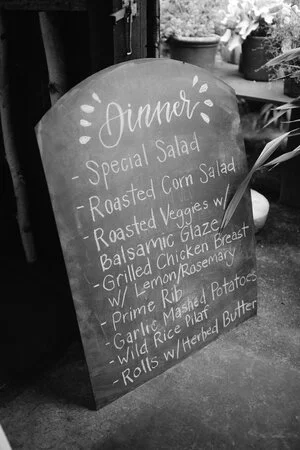 Dinner
- Special Salad
- Roasted Corn Salad
- Roasted Veggies w/
Balsamic Glaze
- Grilled Chicken Breast
w/ Lemon/Rosemary
- Prime Rib
- Garlic Mashed Potatoes
- Wild Rice Pilaf
- Rolls w/ Herbed Butter